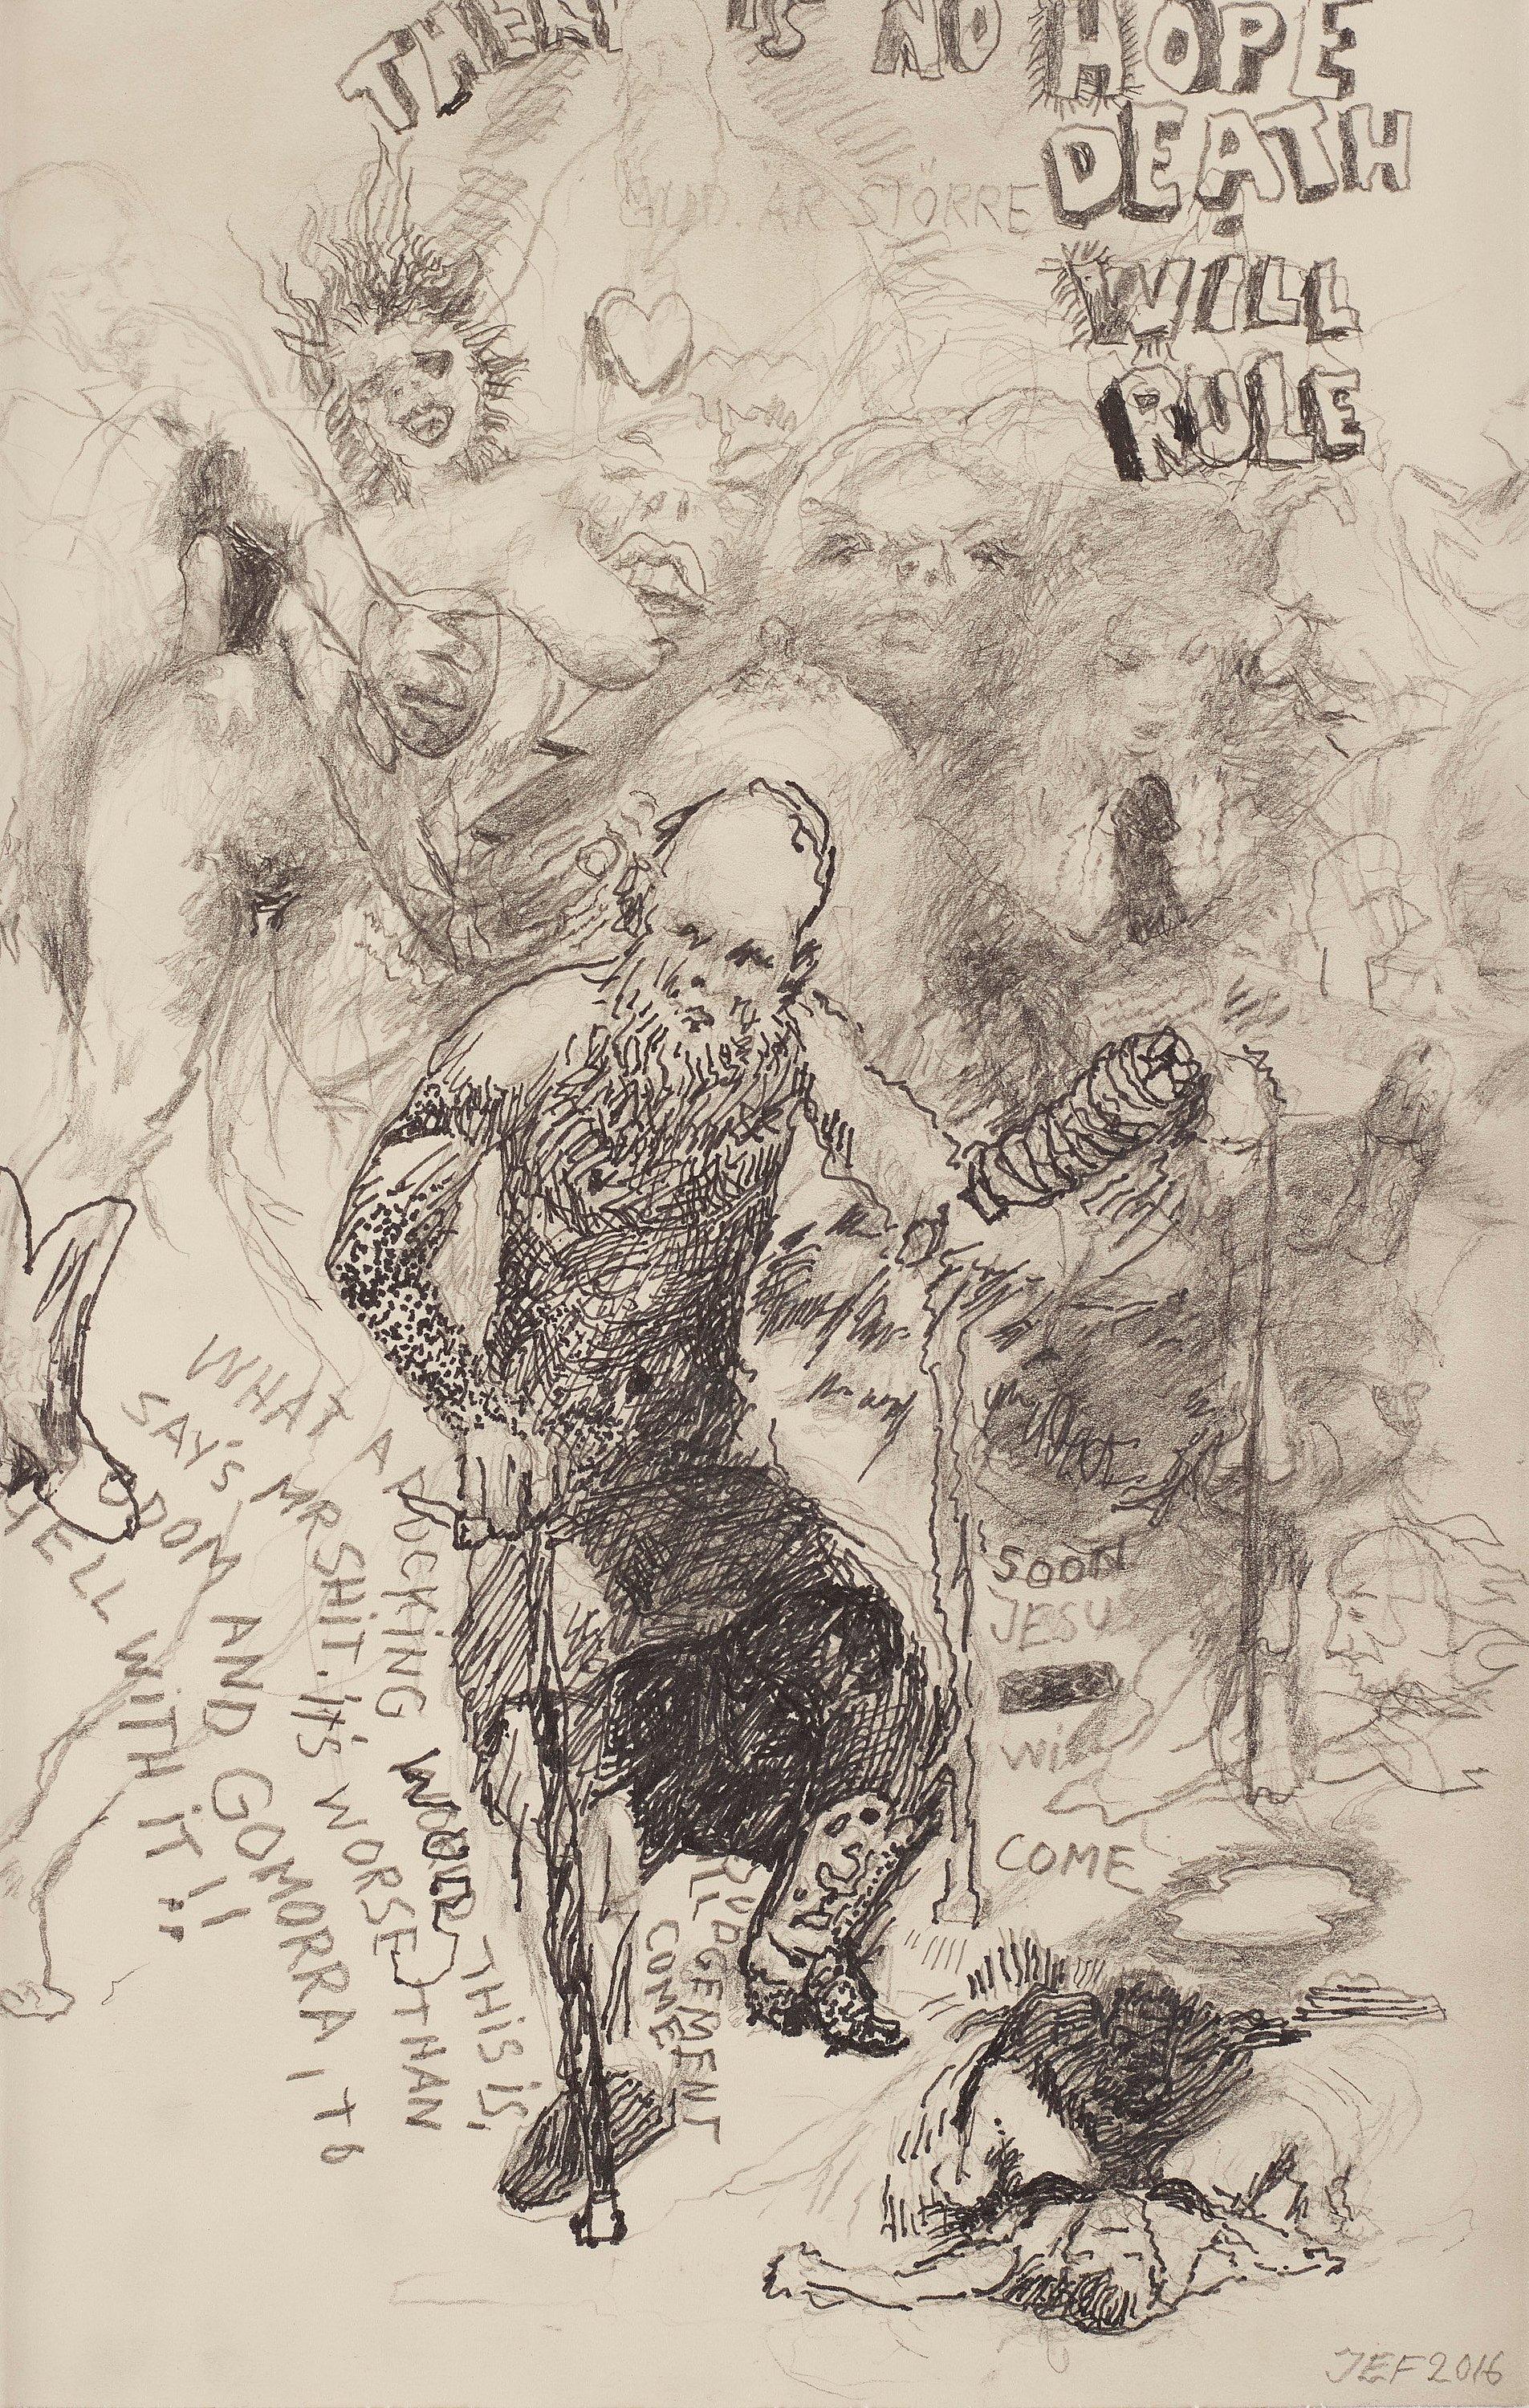 THERE IS NO HOPE
DEATH
WILL
RULE
GUD. ÄR STÖRRE
WHAT A FUCKING WORLD THIS IS,
SAY'S MR SHIT. It's WORSE THAN
SODOM AND GOMORRA, TO
HELL WITH IT!!
JUDGEMENT
WILL
COME
SOON
JESU
WILL
COME
JEF 2016